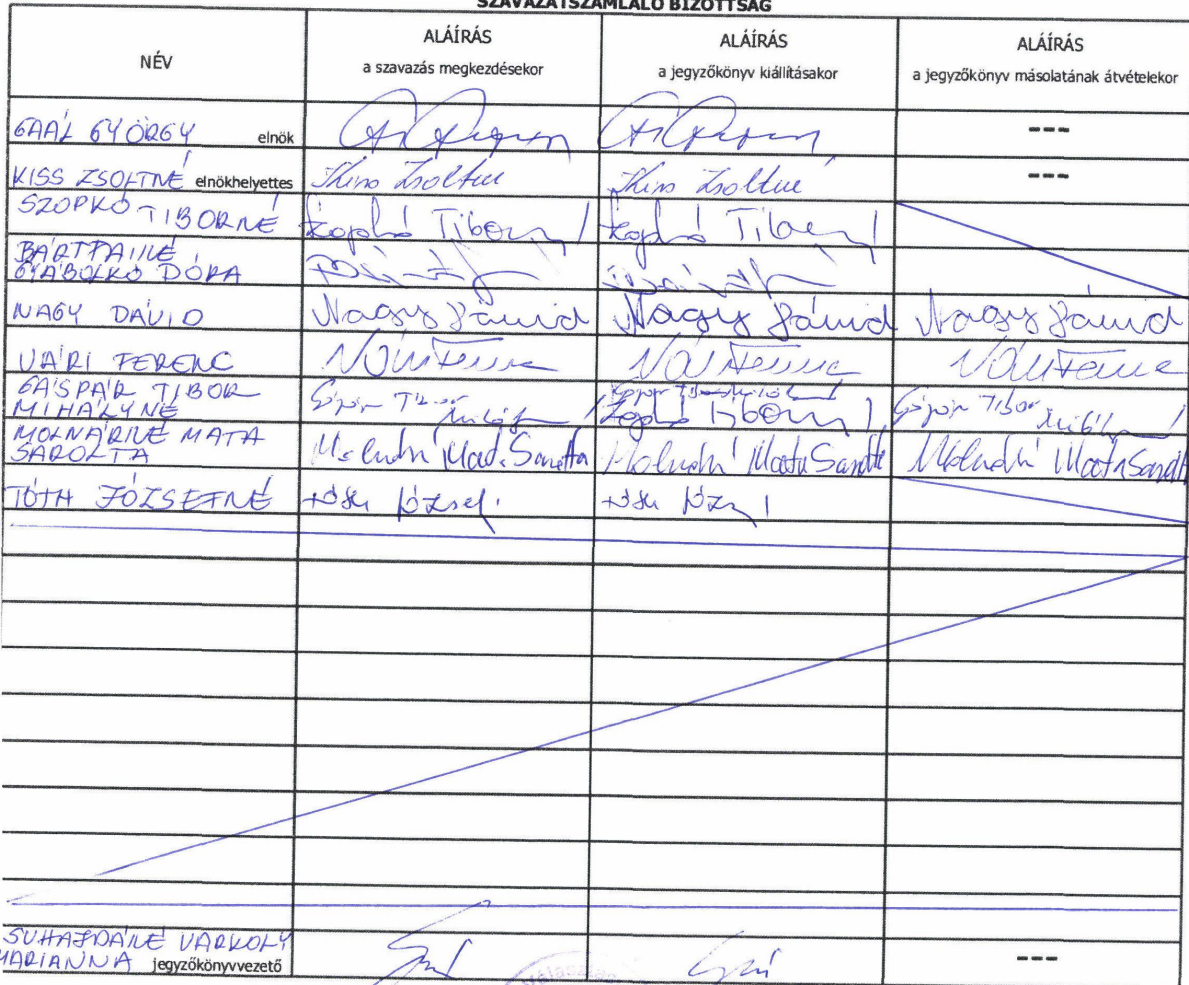 SZAVAZATSZÁMLÁLÓ BIZOTTSÁG
NÉV
ALÁÍRÁS
a szavazás megkezdésekor
ALÁÍRÁS
a jegyzőkönyv kiállításakor
ALÁÍRÁS
a jegyzőkönyv másolatának átvételekor
GAÁL GYÖRGY elnök
---
KISS ZSOLTNÉ elnökhelyettes Kiss Zsoltné Kiss Zsoltné ---
SZOPKÓ TIBORNÉ Szopkó Tiborné Szopkó Tiborné
DÓRA
NAGY DÁVID Nagy Dávid Nagy Dávid Nagy Dávid
VÁRI FERENC Vári Ferenc Vári Ferenc Vári Ferenc
GÁSPÁR TIBOR
MIHÁLYNÉ
Gáspár Tibor
Mihályné
Gáspár Tibor
Mihályné
MOLNÁRNÉ MATA
SAROLTA
Molnárné Mata Sarolta Molnárné Mata Sarolta Molnárné Mata Sarolta
TÓTH JÓZSEFNÉ Tóth József Tóth
SUHAJDÁNÉ VARKOLY
MARIANNA jegyzőkönyvvezető
---